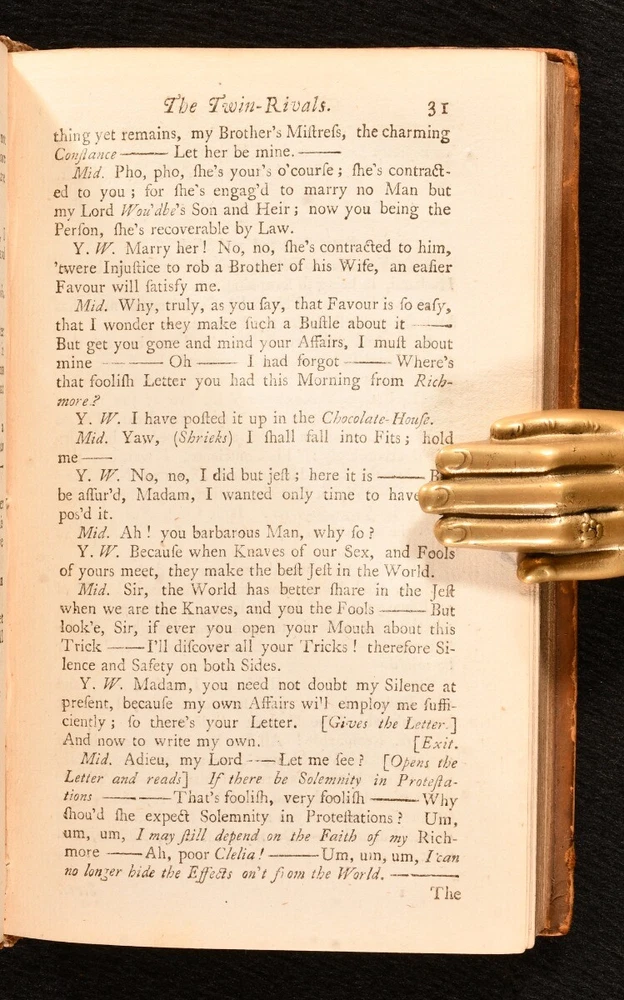 The Twin-Rivals. 31
thing yet remains, my Brother's Miſtreſs, the charming
Conſtance —— Let her be mine. ——
Mid. Pho, pho, ſhe's your's o'courſe; ſhe's contract-
ed to you; for ſhe's engag'd to marry no Man but
my Lord Wou'dbe's Son and Heir; now you being the
Perſon, ſhe's recoverable by Law.
Y. W. Marry her! No, no, ſhe's contracted to him,
'twere Injuſtice to rob a Brother of his Wife, an eaſier
Favour will ſatisfy me.
Mid. Why, truly, as you ſay, that Favour is ſo eaſy,
that I wonder they make ſuch a Buſtle about it ——
But get you gone and mind your Affairs, I muſt about
mine —— —— Oh —— I had forgot —— Where's
that fooliſh Letter you had this Morning from Rich-
more?
Y. W. I have poſted it up in the Chocolate-Houſe.
Mid. Yaw, (Shrieks) I ſhall fall into Fits; hold
me ——
Y. W. No, no, I did but jeſt; here it is ——
be aſſur'd, Madam, I wanted only time to have
pos'd it.
Mid. Ah! you barbarous Man, why ſo?
Y. W. Becauſe when Knaves of our Sex, and Fools
of yours meet, they make the beſt Jeſt in the World.
Mid. Sir, the World has better ſhare in the Jeſt
when we are the Knaves, and you the Fools —— But
look'e, Sir, if ever you open your Mouth about this
Trick —— I'll diſcover all your Tricks! therefore Si-
lence and Safety on both Sides.
Y. W. Madam, you need not doubt my Silence at
preſent, becauſe my own Affairs will employ me ſuffi-
ciently; ſo there's your Letter. [Gives the Letter.]
And now to write my own. [Exit.
Mid. Adieu, my Lord —— Let me ſee? [Opens the
Letter and reads] If there be Solemnity in Proteſta-
tions —— —— That's fooliſh, very fooliſh —— Why
ſhou'd ſhe expect Solemnity in Proteſtations? Um,
um, um, I may ſtill depend on the Faith of my Rich-
more —— Ah, poor Clelia! —— Um, um, um, I can
no longer hide the Effects on't from the World. ——
The